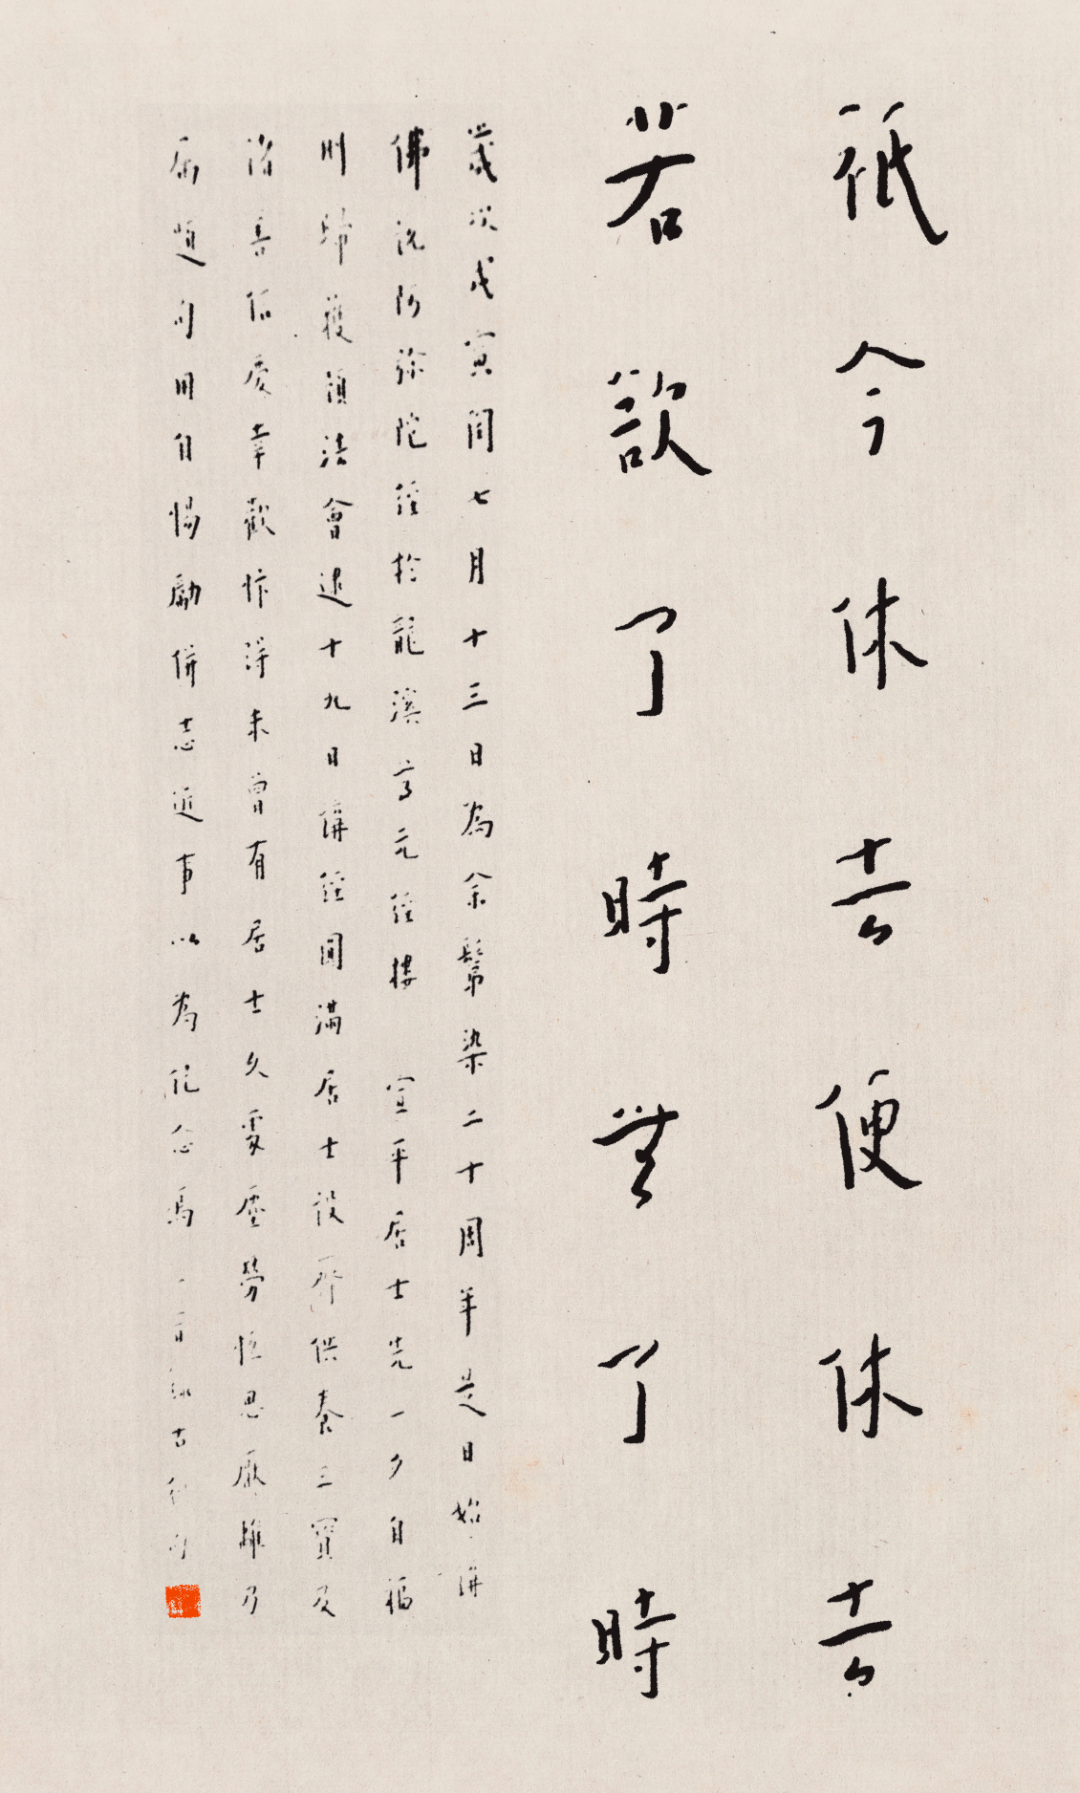 祇今休去便休去
若欲了時無了時
歲次戊寅閏七月十三日為余鬀染二十周年是日始講
佛說阿彌陀經於龍溪尊元經樓 宣平居士先一夕自福
州歸獲預法會逮十九日講經圓滿居士設齊供養三寶及
諸善侶慶幸歡忭得未曾有居士久處塵勞恒思厭離乃
屬題句用自惕勵併志近事以為紀念焉 一音